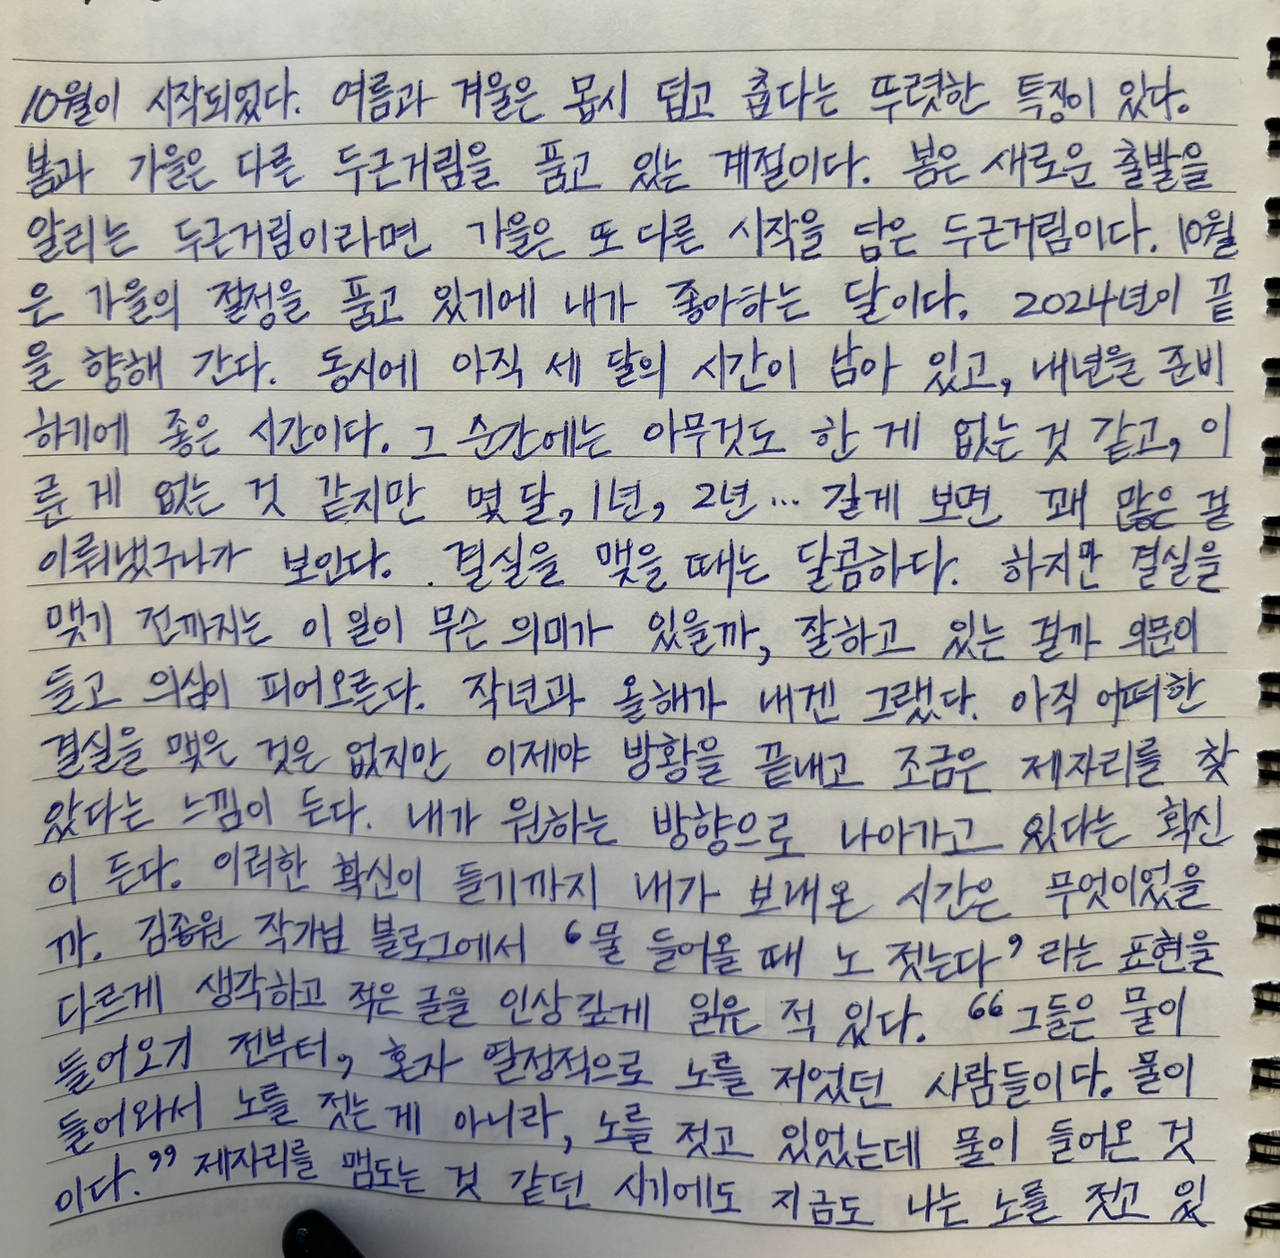 10월이 시작되었다. 여름과 겨울은 몹시 덥고 춥다는 뚜렷한 특징이 있다.
봄과 가을은 다른 두근거림을 품고 있는 계절이다. 봄은 새로운 출발을
알리는 두근거림이라면 가을은 또 다른 시작을 담은 두근거림이다. 10월
은 가을의 절정을 품고 있기에 내가 좋아하는 달이다. 2024년이 끝
을 향해 간다. 동시에 아직 세 달의 시간이 남아 있고, 내년을 준비
하기에 좋은 시간이다. 그 순간에는 아무것도 한 게 없는 것 같고, 이
룬 게 없는 것 같지만 몇 달, 1년, 2년... 길게 보면 꽤 많은 걸
이뤄냈구나가 보인다. 결실을 맺을 때는 달콤하다. 하지만 결실을
맺기 전까지는 이 일이 무슨 의미가 있을까, 잘하고 있는 걸까 의문이
들고 의심이 피어오른다. 작년과 올해가 내겐 그랬다. 아직 어떠한
결실을 맺은 것은 없지만 이제야 방황을 끝내고 조금은 제자리를 찾
았다는 느낌이 든다. 내가 원하는 방향으로 나아가고 있다는 확신
이 든다. 이러한 확신이 들기까지 내가 보내온 시간은 무엇이었을
까. 김종원 작가님 블로그에서 ‘물 들어올 때 노 젓는다’ 라는 표현을
다르게 생각하고 적은 글을 인상깊게 읽은 적 있다. “그들은 물이
들어오기 전부터, 혼자 열정적으로 노를 저었던 사람들이다. 물이
들어와서 노를 젓는 게 아니라, 노를 젓고 있었는데 물이 들어온 것
이다.” 제자리를 맴도는 것 같던 시기에도 지금도 나는 노를 젓고 있